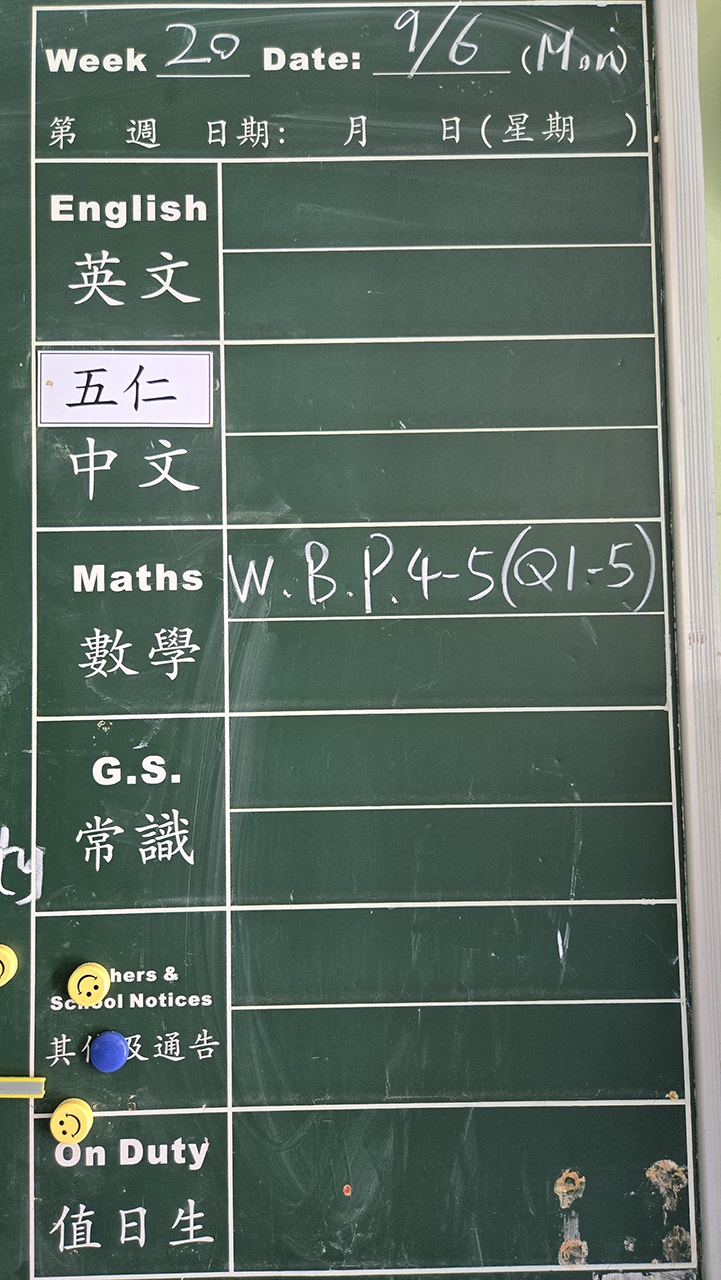 Week 20 Date: 9/6 (Mon)
第 週 日期: 月 日(星期 )
English
英文
五仁
中文
Maths W.B.P.4-5(Q1-5)
數學
G.S.
常識
hers &
School Notices
其他及通告
On Duty
值日生